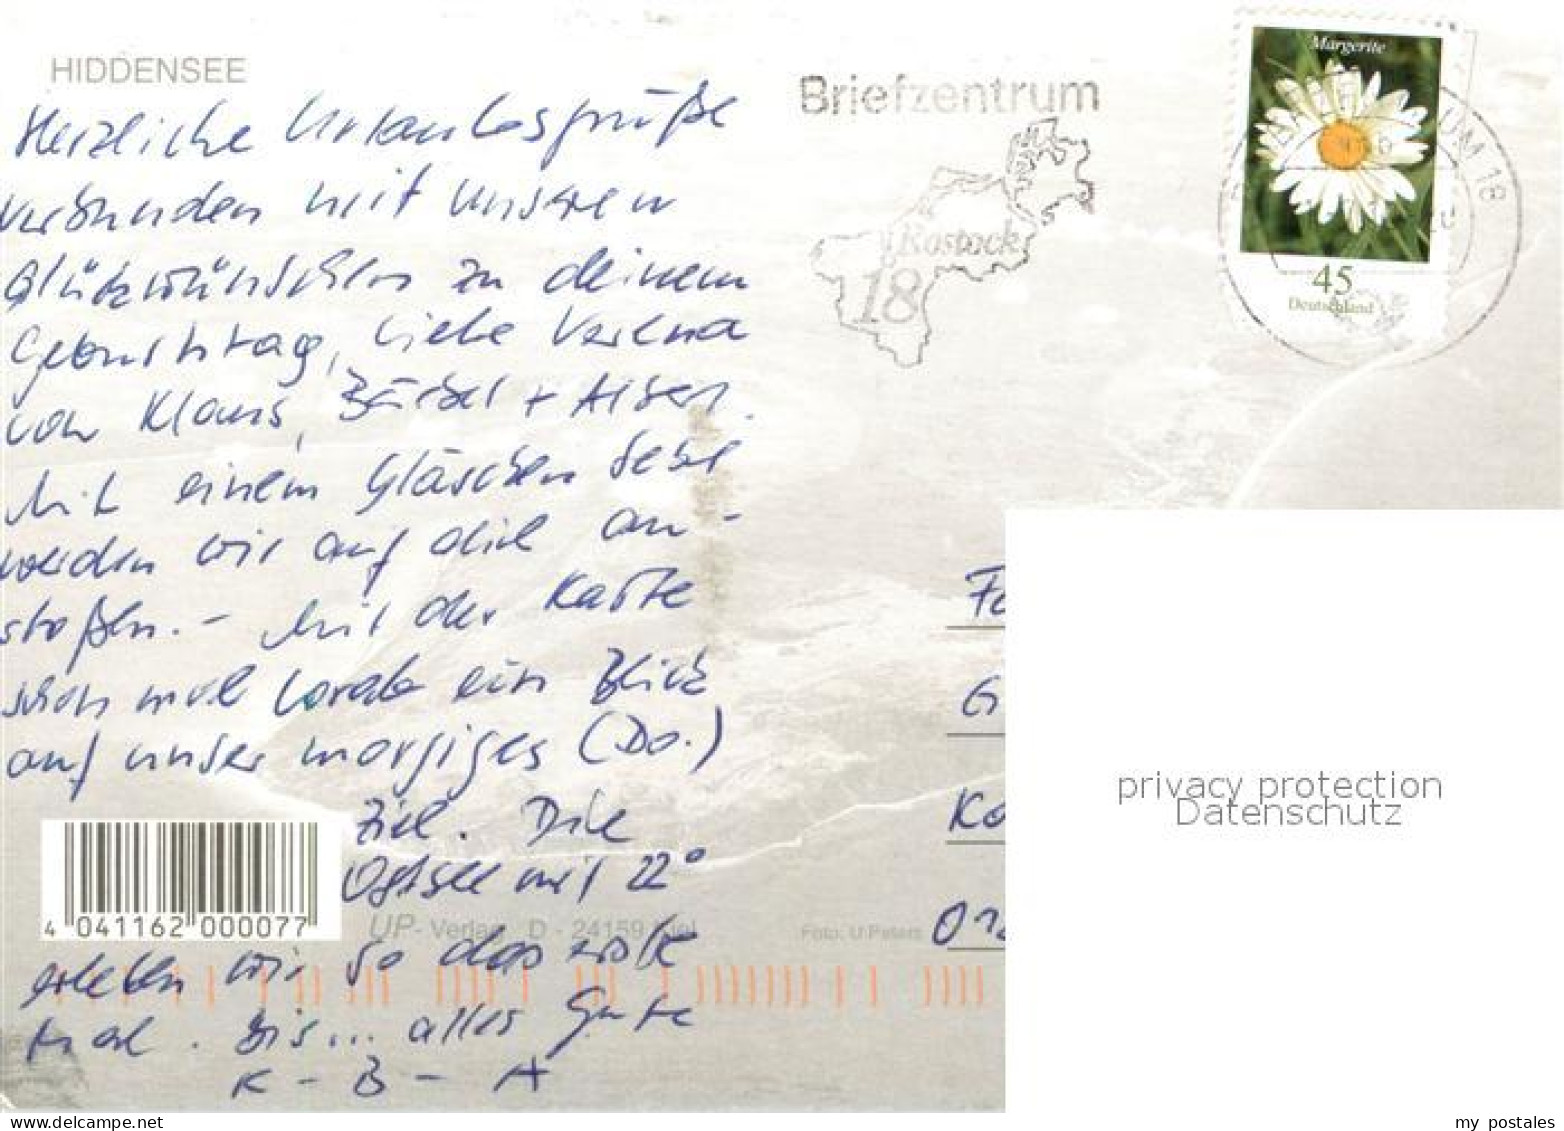 HIDDENSEE
Herzliche Urlaubsgrüße
verbunden mit unseren
Glückwünschen zu deinem
Geburtstag, liebe Verena
von Klaus, Bärbel + Albert.
Mit einem Gläschen Sekt
werden wir auf dich an-
stoßen. - Mit der Karte
schon mal vorab ein Blick
auf unser morgiges (Do.)
Ziel. Die
Ostsee mit 22°
erleben wir so das erste
Mal. Bis... alles Gute
K - B - A
4 041162 000077
UP- Verlag D - 24159 Kiel
Foto: U.Peters
Briefzentrum
Rostock
18
Margerite
45
Deutschland
UM 18
Fa
G
Ko
01
privacy protection
Datenschutz
delcampe.net
my_postales